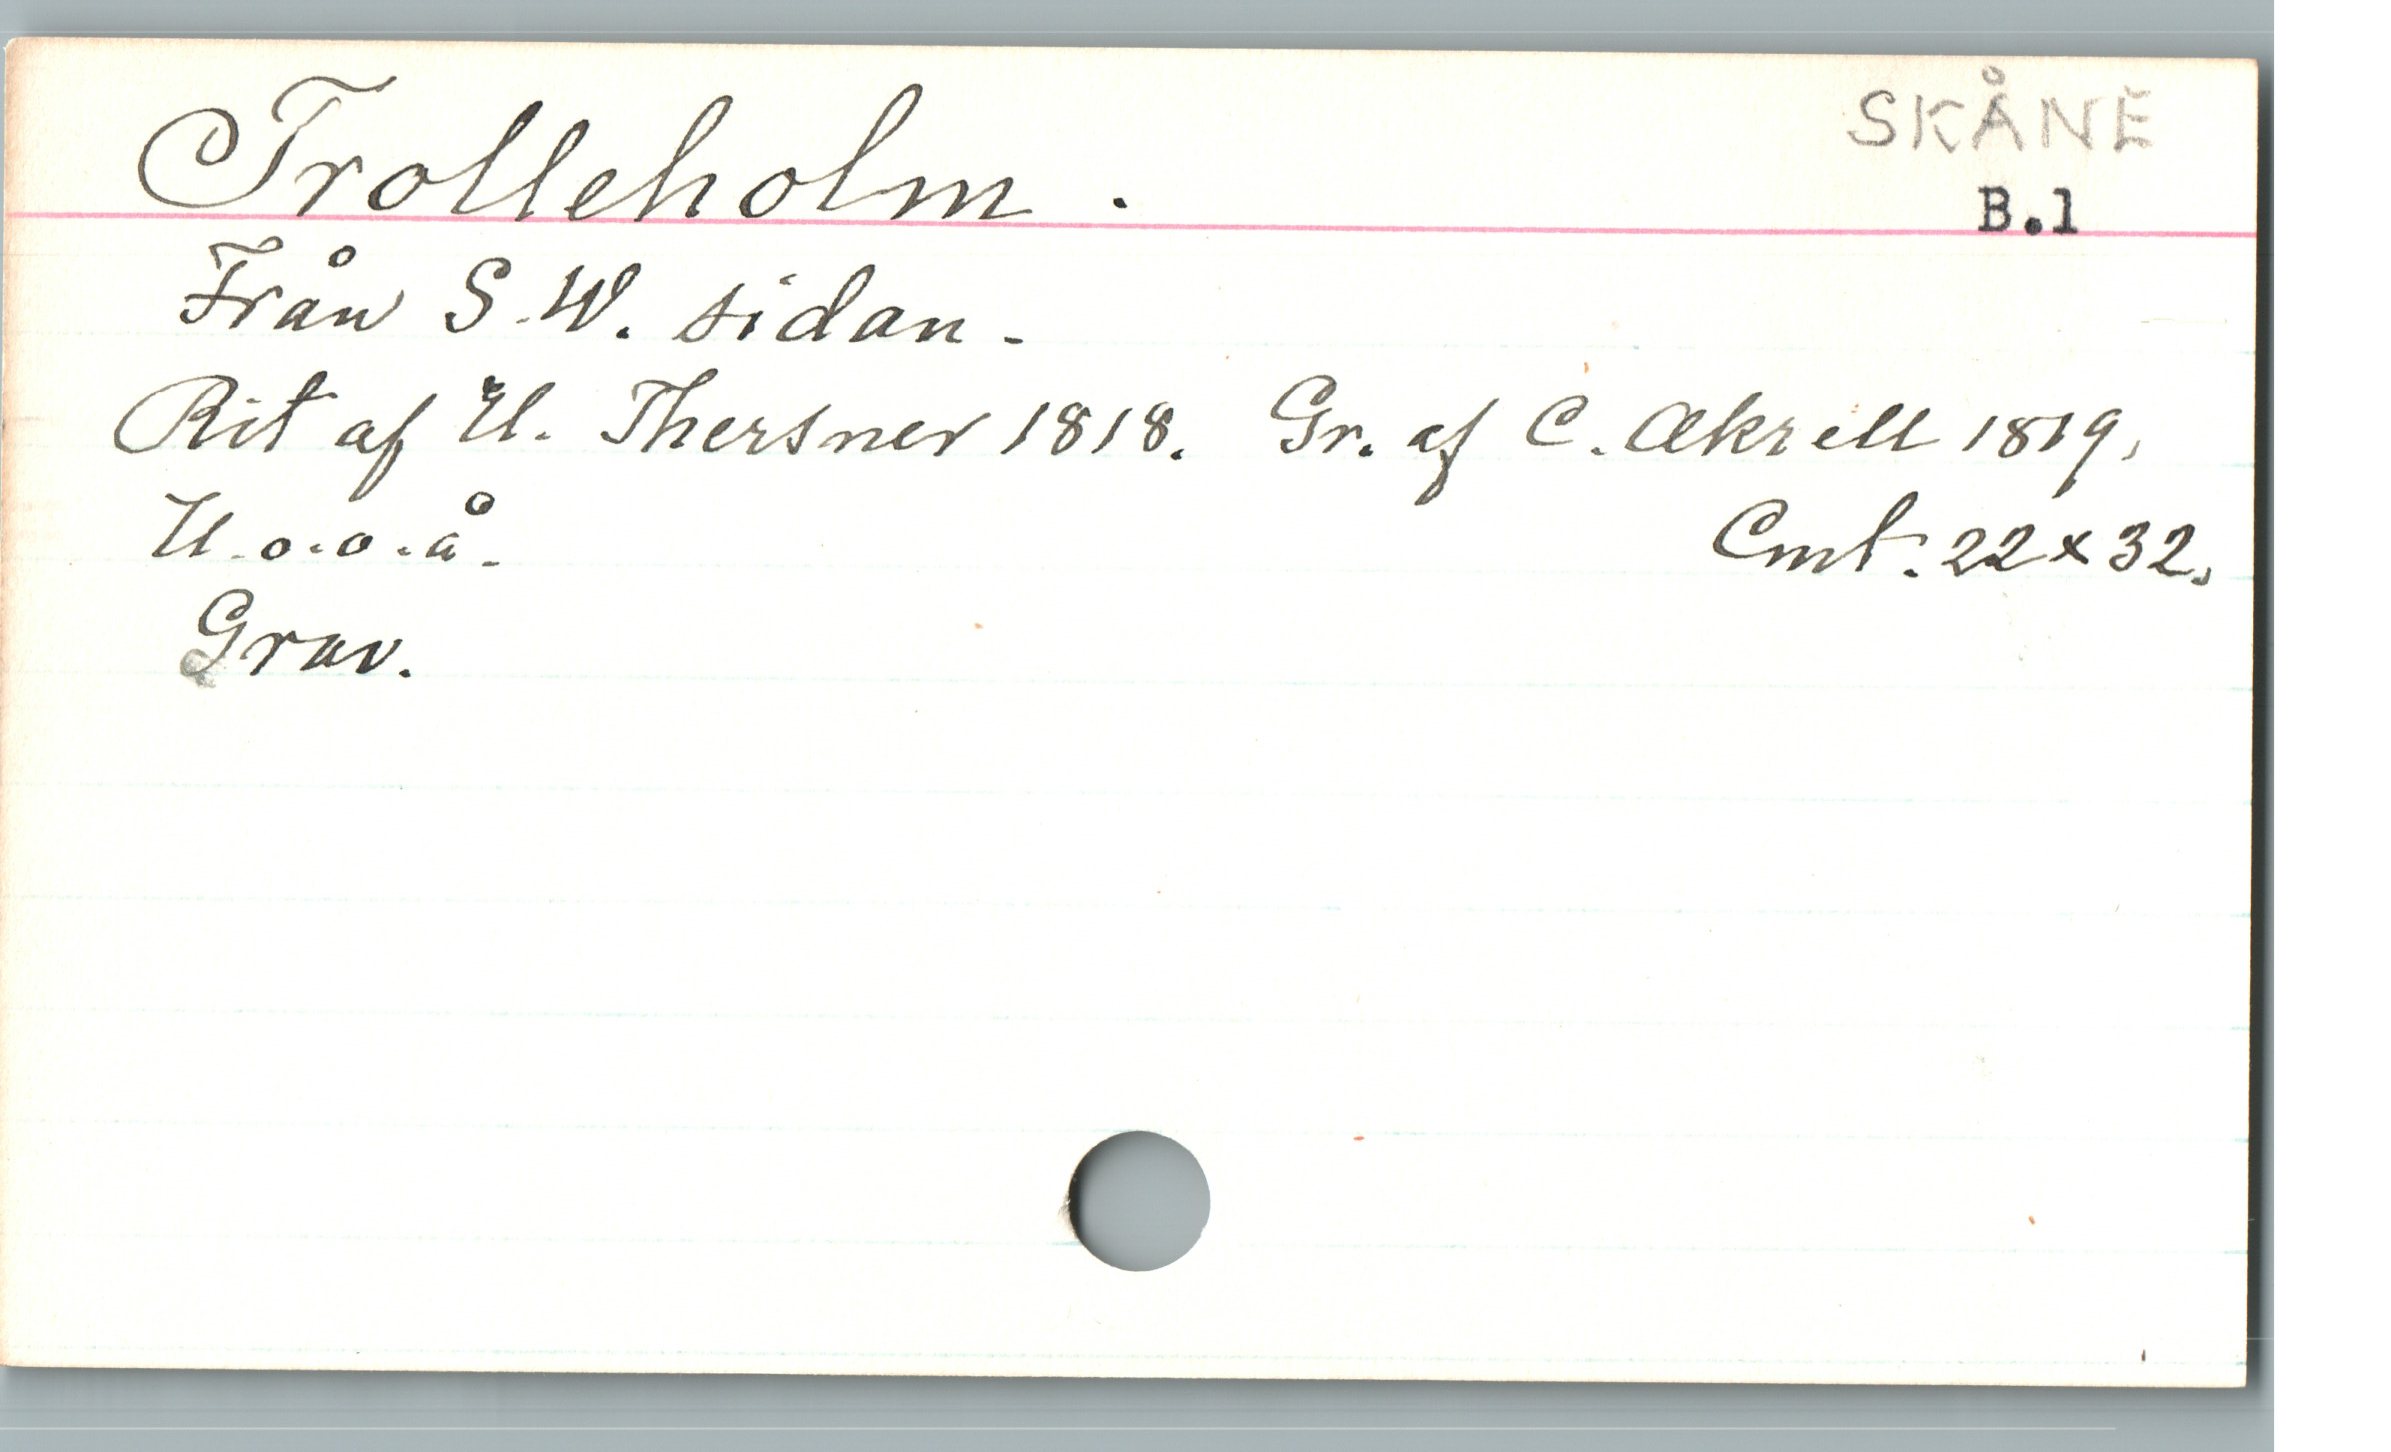 Trolleholm.
SKÅNE
B.1
Från S.W. sidan.
Rit af U. Thersner 1818. Gr. af C. Akrell 1819.
U.o.o.å.
Cmt. 22 x 32.
Grav.